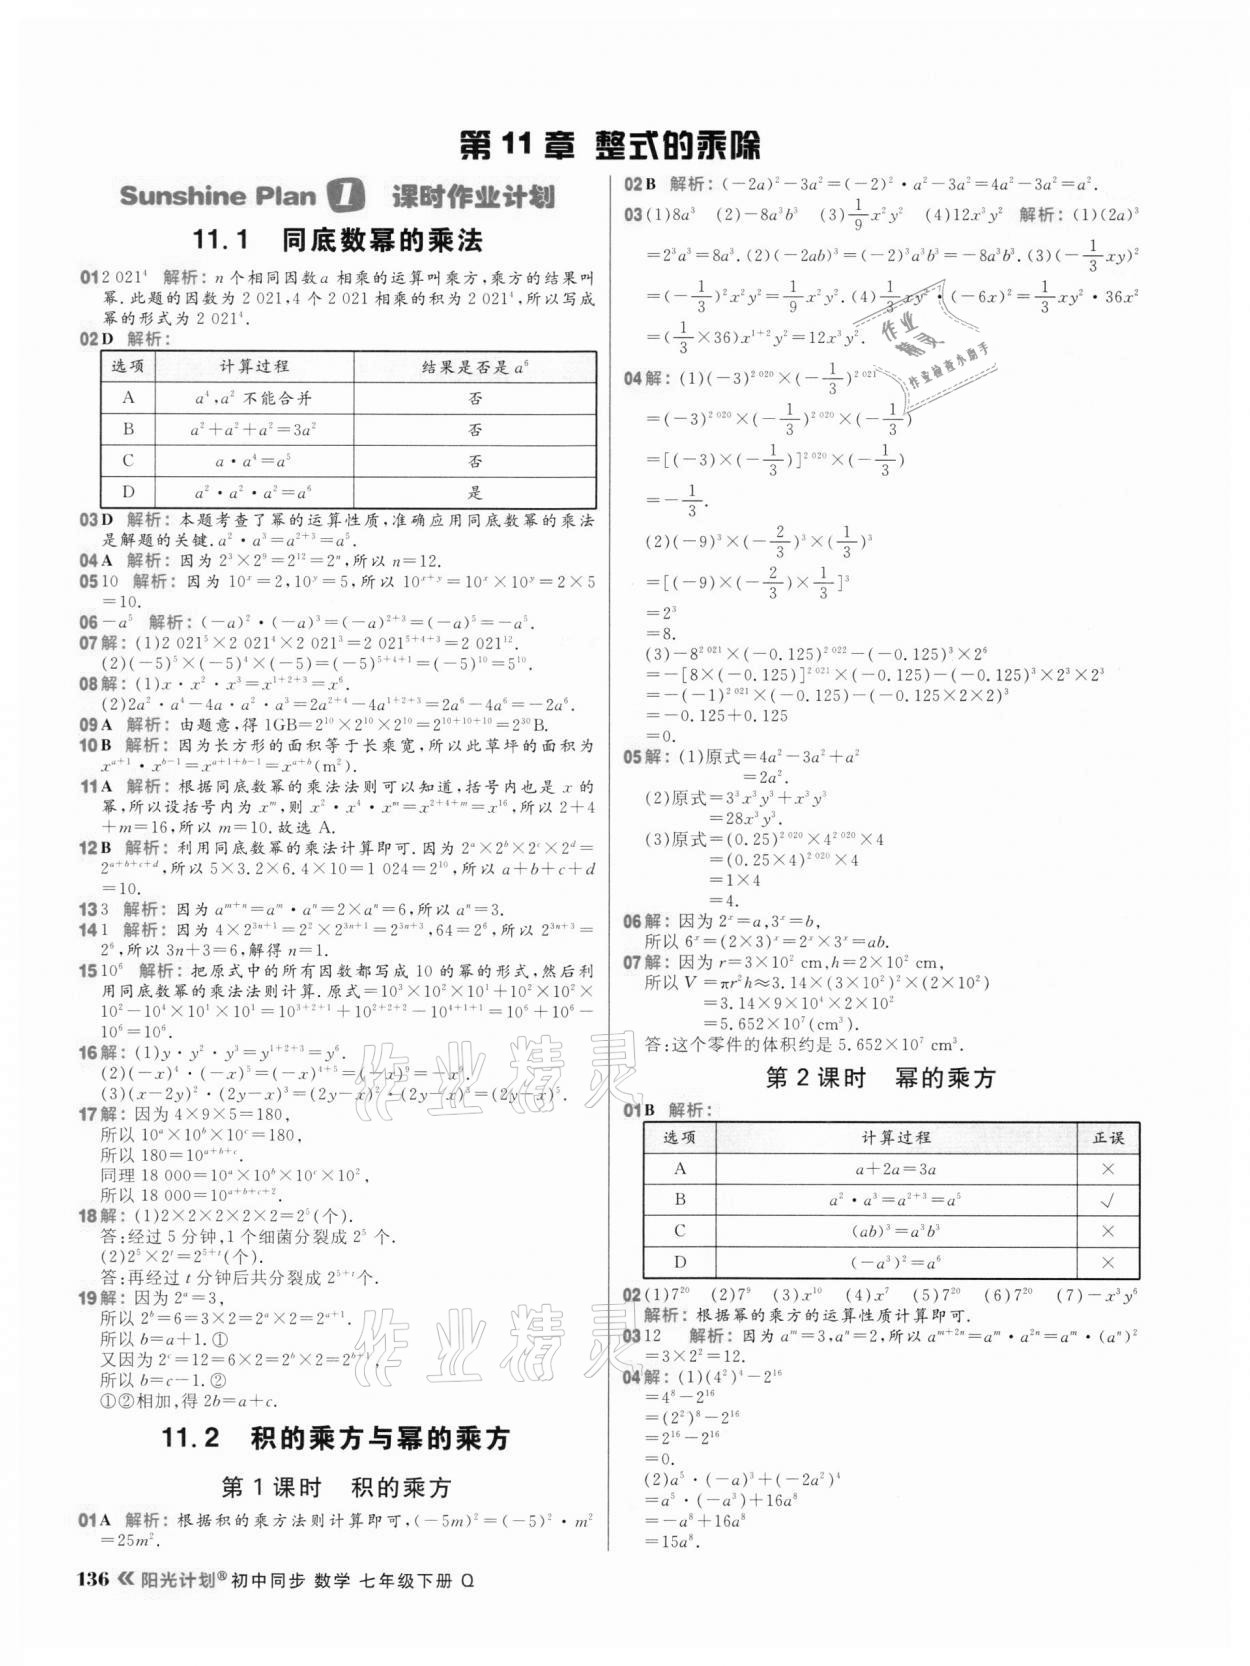 第 11 章 整式的乘除
Sunshine Plan 1 课时作业计划
11.1 同底数幂的乘法
01 2 021⁴ 解析:n 个相同因数 a 相乘的运算叫乘方,乘方的结果叫
幂.此题的因数为 2 021,4 个 2 021 相乘的积为 2 021⁴,所以写成
幂的形式为 2 021⁴.
02 D 解析:
选项 计算过程 结果是否是 a⁶
A a⁴,a² 不能合并 否
B a²+a²+a²=3a² 否
C a·a⁴=a⁵ 否
D a²·a²·a²=a⁶ 是
03 D 解析:本题考查了幂的运算性质,准确应用同底数幂的乘法
是解题的关键.a²·a³=a²⁺³=a⁵.
04 A 解析:因为 2³×2⁹=2¹²=2ⁿ,所以 n=12.
05 10 解析:因为 10ˣ=2,10ʸ=5,所以 10ˣ⁺ʸ=10ˣ×10ʸ=2×5
=10.
06 -a⁵ 解析:(-a)²·(-a)³=(-a)²⁺³=(-a)⁵=-a⁵.
07 解:(1)2 021⁵×2 021⁴×2 021³=2 021⁵⁺⁴⁺³=2 021¹².
(2)(-5)⁵×(-5)⁴×(-5)=(-5)⁵⁺⁴⁺¹=(-5)¹⁰=5¹⁰.
08 解:(1)x·x²·x³=x¹⁺²⁺³=x⁶.
(2)2a²·a⁴-4a·a²·a³=2a²⁺⁴-4a¹⁺²⁺³=2a⁶-4a⁶=-2a⁶.
09 A 解析:由题意,得 1GB=2¹⁰×2¹⁰×2¹⁰=2¹⁰⁺¹⁰⁺¹⁰=2³⁰B.
10 B 解析:因为长方形的面积等于长乘宽,所以此草坪的面积为
xᵃ⁺¹·xᵇ⁻¹=xᵃ⁺¹⁺ᵇ⁻¹=xᵃ⁺ᵇ(m²).
11 A 解析:根据同底数幂的乘法法则可以知道,括号内也是 x 的
幂,所以设括号内为 xᵐ,则 x²·x⁴·xᵐ=x²⁺⁴⁺ᵐ=x¹⁶,所以 2+4
+m=16,所以 m=10.故选 A.
12 B 解析:利用同底数幂的乘法计算即可.因为 2ᵃ×2ᵇ×2ᶜ×2ᵈ=
2ᵃ⁺ᵇ⁺ᶜ⁺ᵈ,所以 5×3.2×6.4×10=1 024=2¹⁰,所以 a+b+c+d
=10.
13 3 解析:因为 aᵐ⁺ⁿ=aᵐ·aⁿ=2×aⁿ=6,所以 aⁿ=3.
14 1 解析:因为 4×2³ⁿ⁺¹=2²×2³ⁿ⁺¹=2³ⁿ⁺³,64=2⁶,所以 2³ⁿ⁺³=
2⁶,所以 3n+3=6,解得 n=1.
15 10⁶ 解析:把原式中的所有因数都写成 10 的幂的形式,然后利
用同底数幂的乘法法则计算.原式=10³×10²×10¹+10²×10²×
10²-10⁴×10¹×10¹=10³⁺²⁺¹+10²⁺²⁺²-10⁴⁺¹⁺¹=10⁶+10⁶-
10⁶=10⁶.
16 解:(1)y·y²·y³=y¹⁺²⁺³=y⁶.
(2)(-x)⁴·(-x)⁵=(-x)⁴⁺⁵=(-x)⁹=-x⁹.
(3)(x-2y)²·(2y-x)³=(2y-x)²·(2y-x)³=(2y-x)⁵.
17 解:因为 4×9×5=180,
所以 10ᵃ×10ᵇ×10ᶜ=180,
所以 180=10ᵃ⁺ᵇ⁺ᶜ.
同理 18 000=10ᵃ×10ᵇ×10ᶜ×10²,
所以 18 000=10ᵃ⁺ᵇ⁺ᶜ⁺².
18 解:(1)2×2×2×2×2=2⁵(个).
答:经过 5 分钟,1 个细菌分裂成 2⁵ 个.
(2)2⁵×2ᵗ=2⁵⁺ᵗ(个).
答:再经过 t 分钟后共分裂成 2⁵⁺ᵗ个.
19 解:因为 2ᵃ=3,
所以 2ᵇ=6=3×2=2ᵃ×2=2ᵃ⁺¹.
所以 b=a+1.①
又因为 2ᶜ=12=6×2=2ᵇ×2=2ᵇ⁺¹,
所以 b=c-1.②
①②相加,得 2b=a+c.
11.2 积的乘方与幂的乘方
第 1 课时 积的乘方
01 A 解析:根据积的乘方法则计算即可,(-5m)²=(-5)²·m²
=25m².
136 《 阳光计划® 初中同步 数学 七年级下册 Q
02 B 解析:(-2a)²-3a²=(-2)²·a²-3a²=4a²-3a²=a².
03 (1)8a³ (2)-8a³b³ (3)1/9x²y² (4)12x³y² 解析:(1)(2a)³
=2³a³=8a³.(2)(-2ab)³=(-2)³a³b³=-8a³b³.(3)(-1/3xy)²
=(-1/3)²x²y²=1/9x²y².(4)1/3xy²·(-6x)²=1/3xy²·36x²
=(1/3×36)x¹⁺²y²=12x³y².
04 解:(1)(-3)²⁰²⁰×(-1/3)²⁰²¹
=(-3)²⁰²⁰×(-1/3)²⁰²⁰×(-1/3)
=[(-3)×(-1/3)]²⁰²⁰×(-1/3)
=-1/3.
(2)(-9)³×(-2/3)³×(1/3)³
=[(-9)×(-2/3)×1/3]³
=2³
=8.
(3)-8²⁰²¹×(-0.125)²⁰²²-(-0.125)³×2⁶
=-[8×(-0.125)]²⁰²¹×(-0.125)-(-0.125)³×2³×2³
=-(-1)²⁰²¹×(-0.125)-(-0.125×2×2)³
=-0.125+0.125
=0.
05 解:(1)原式=4a²-3a²+a²
=2a².
(2)原式=3³x³y³+x³y³
=28x³y³.
(3)原式=(0.25)²⁰²⁰×4²⁰²⁰×4
=(0.25×4)²⁰²⁰×4
=1×4
=4.
06 解:因为 2ˣ=a,3ˣ=b,
所以 6ˣ=(2×3)ˣ=2ˣ×3ˣ=ab.
07 解:因为 r=3×10² cm,h=2×10² cm,
所以 V=πr²h≈3.14×(3×10²)²×(2×10²)
=3.14×9×10⁴×2×10²
=5.652×10⁷(cm³).
答:这个零件的体积约是 5.652×10⁷ cm³.
第 2 课时 幂的乘方
01 B 解析:
选项 计算过程 正误
A a+2a=3a ×
B a²·a³=a²⁺³=a⁵ √
C (ab)³=a³b³ ×
D (-a³)²=a⁶ ×
02 (1)7²⁰ (2)7⁹ (3)x¹⁰ (4)x⁷ (5)7²⁰ (6)7²⁰ (7)-x³y⁶
解析:根据幂的乘方的运算性质计算即可.
03 12 解析:因为 aᵐ=3,aⁿ=2,所以 aᵐ⁺²ⁿ=aᵐ·a²ⁿ=aᵐ·(aⁿ)²
=3×2²=12.
04 解:(1)(4²)⁴-2¹⁶
=4⁸-2¹⁶
=(2²)⁸-2¹⁶
=2¹⁶-2¹⁶
=0.
(2)a⁵·(-a)³+(-2a²)⁴
=a⁵·(-a³)+16a⁸
=-a⁸+16a⁸
=15a⁸.
作业精灵
作业检查小助手
作业精灵
作业精灵